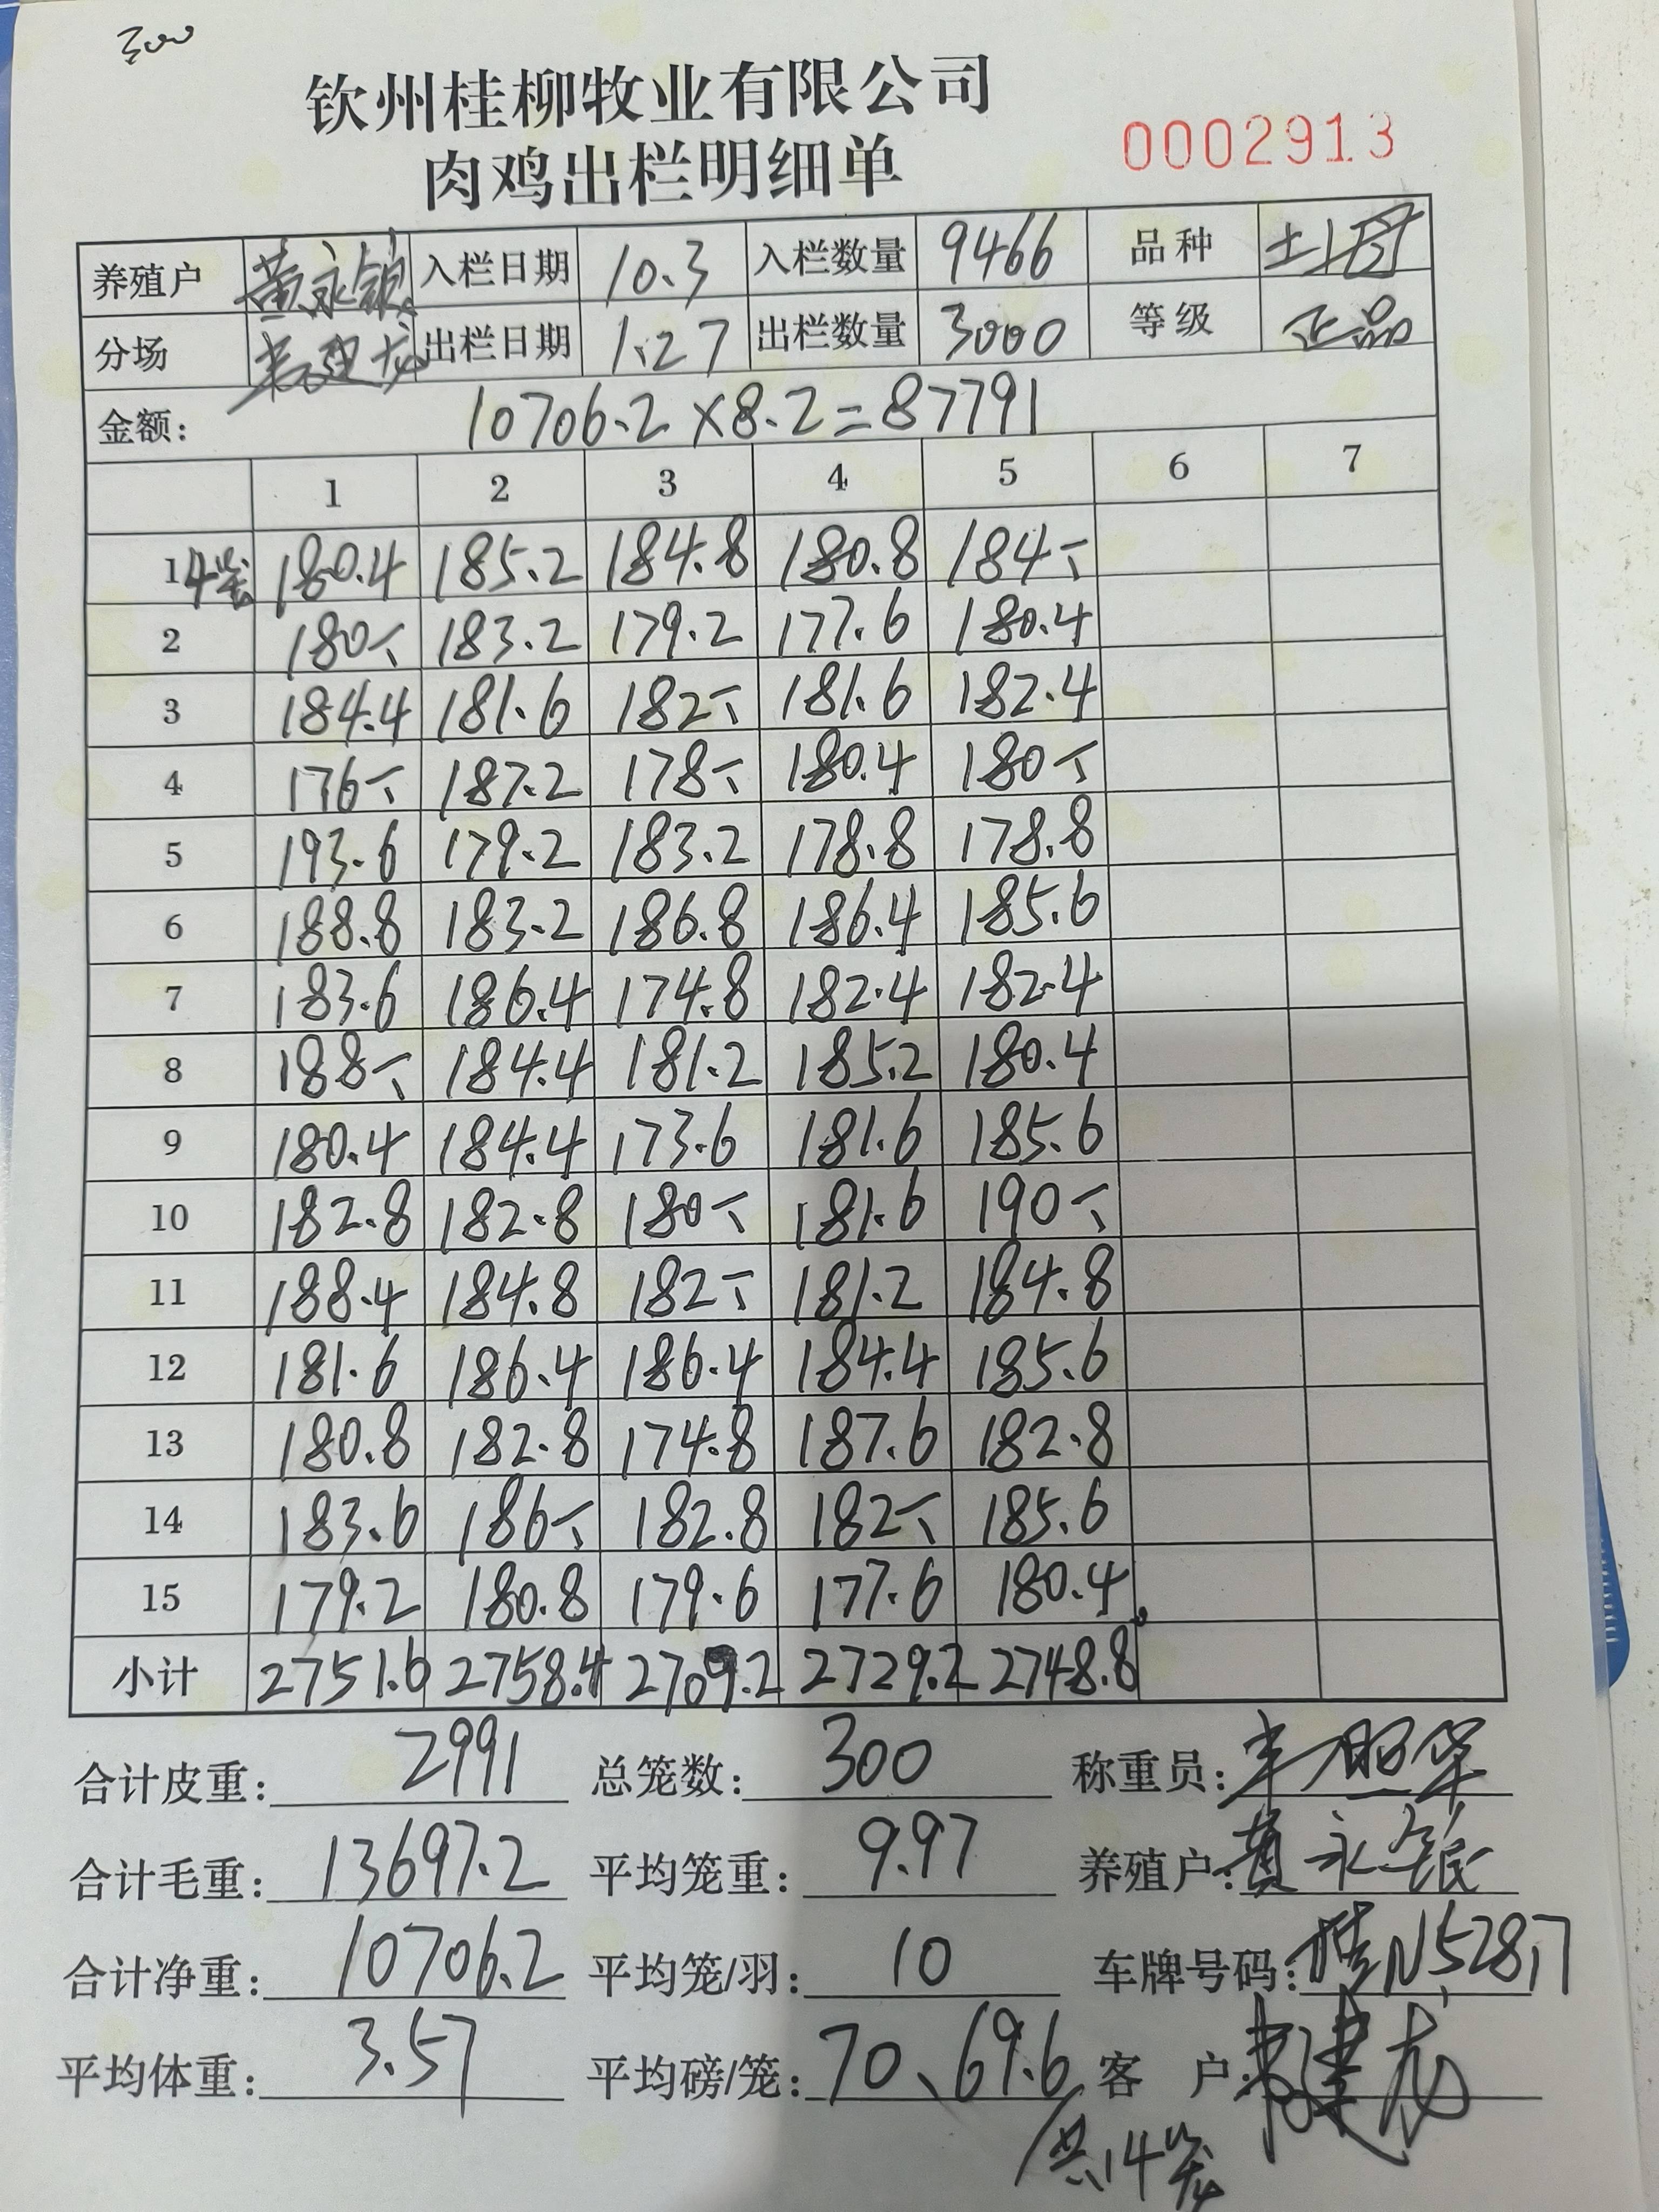 300
钦州桂柳牧业有限公司
肉鸡出栏明细单
0002913
养殖户 黄永银 入栏日期 10.3 入栏数量 9466 品种 土
分场 韦建龙 出栏日期 1.27 出栏数量 3000 等级 正品
金额: 10706.2×8.2=87791
1 2 3 4 5 6 7
1 4笼 180.4 185.2 184.8 180.8 184-、
2 180-、 183.2 179.2 177.6 180.4
3 184.4 181.6 182-、 181.6 182.4
4 176-、 187.2 178-、 180.4 180-、
5 193.6 179.2 183.2 178.8 178.8
6 188.8 183.2 186.8 186.4 185.6
7 183.6 186.4 174.8 182.4 182.4
8 188-、 184.4 181.2 185.2 180.4
9 180.4 184.4 173.6 181.6 185.6
10 182.8 182.8 180-、 181.6 190-、
11 188.4 184.8 182-、 181.2 184.8
12 181.6 186.4 186.4 184.4 185.6
13 180.8 182.8 174.8 187.6 182.8
14 183.6 186-、 182.8 182-、 185.6
15 179.2 180.8 179.6 177.6 180.4
小计 2751.6 2758.4 2709.2 2729.2 2748.8
合计皮重: 2991 总笼数: 300 称重员:
合计毛重: 13697.2 平均笼重: 9.97 养殖户: 黄永银
合计净重: 10706.2 平均笼/羽: 10 车牌号码: 桂N52817
平均体重: 3.57 平均磅/笼: 70、69.6 客 户: 韦建龙
共14笼